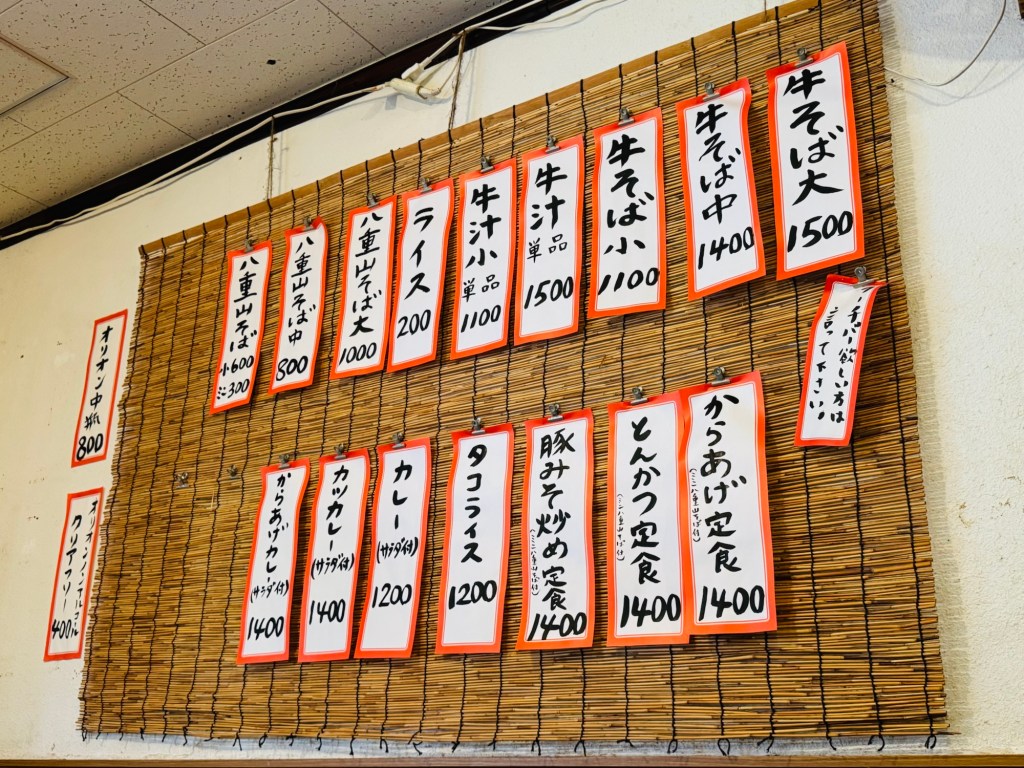 牛そば大
1500
牛そば中
1400
牛そば小
1100
牛汁
単品
1500
牛汁小
単品
1100
ライス
200
八重山そば大
1000
八重山そば中
800
八重山そば
小600
ミニ300
欲しい方は
言って下さい。
からあげ定食
(ミニ八重山そば付)
1400
とんかつ定食
(ミニ八重山そば付)
1400
豚みそ炒め定食
(ミニ八重山そば付)
1400
タコライス
1200
カレー
(サラダ付)
1200
カツカレー
(サラダ付)
1400
からあげカレー
(サラダ付)
1400
オリオン中瓶
800
オリオンノンアルコール
クリアフリー
400